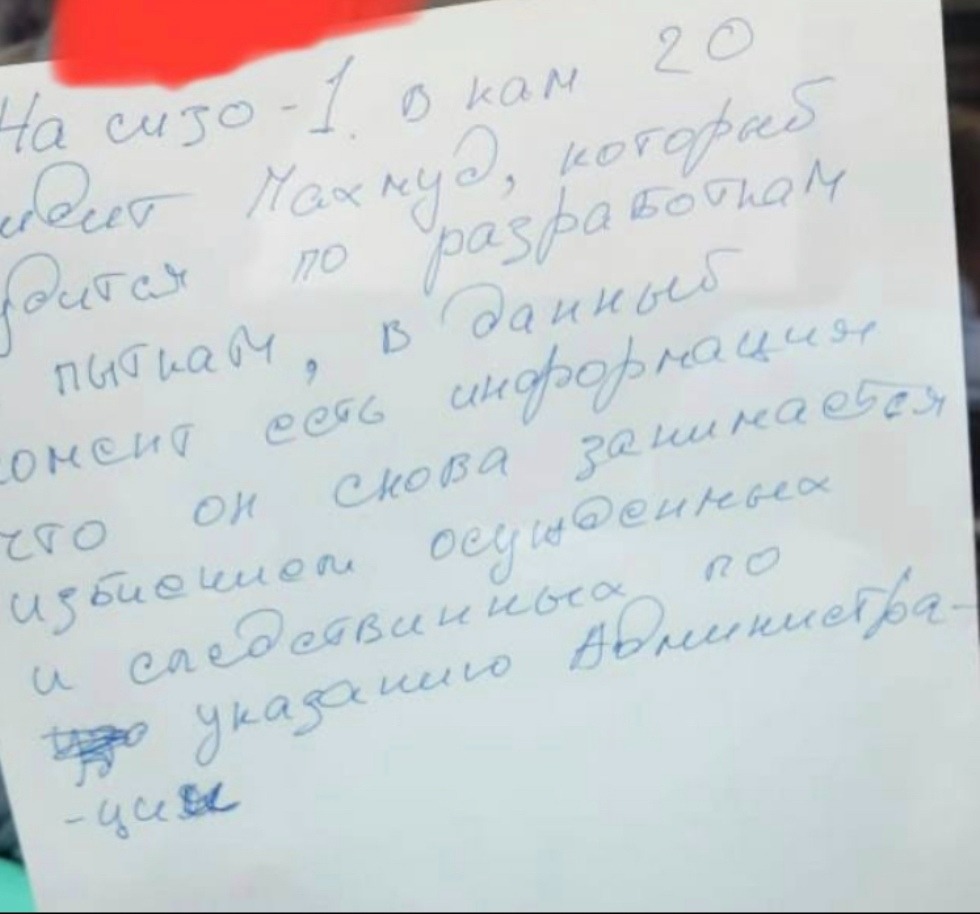 На сизо-1. в кам 20
идит Махмуд, который
удится по разработкам
пыткам, в данный
омент есть информация
что он снова занимается
избиением осужденных
и следственных по
указанию Администра-
-ции